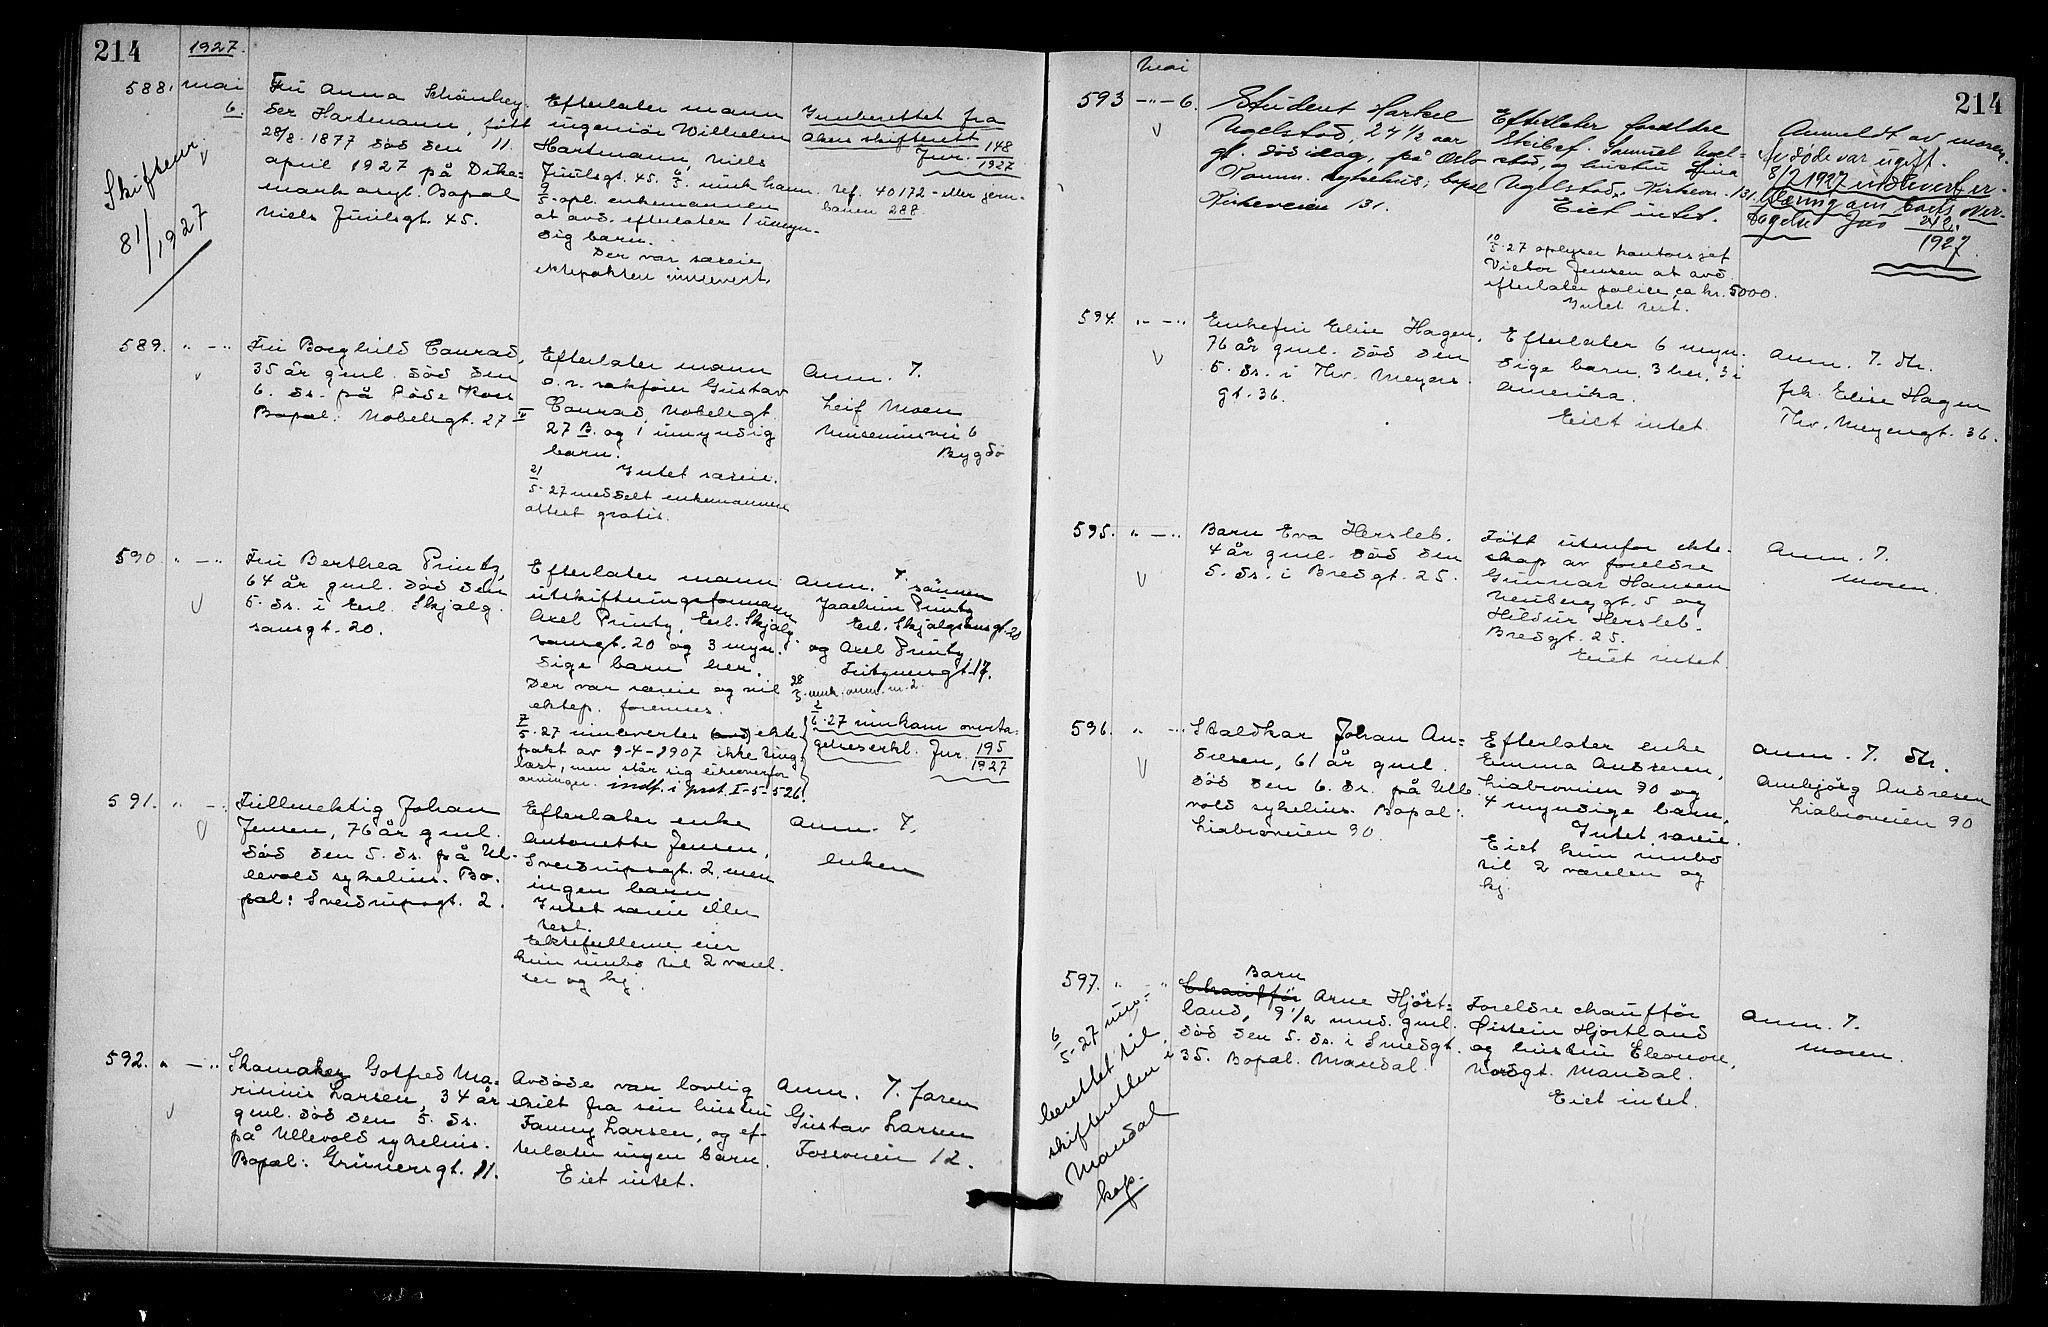 214
1927.
588. mai
6.
Fru Anna Schönhey-
der Hartmann, født
28/8. 1877 död den 11.
april 1927 på Dike-
mark asyl. Bopæl
Niels Juulsgt. 45.
Efterlater mann
ingeniör Wilhelm
Hartmann, Niels
Juulsgt. 45. 6/5. munk
9/5. opl. enkemannen
at avd. efterlater 1 umyn-
dig barn.
Der var særeie
ektepakten innlevert.
Innberettet fra
Akers skifterett
Jnr. 148/1927
ref. 40172 - eller jern-
banen 288.
Skifteur.
81/1927
589. " - "
Fru Borghild Conrad,
35 år gml. död den
6. ds. på Röde Kors
Bopæl: Nobelsgt. 27 II
Efterlater mann
o.r. sakförer Gustav
Conrad, Nobelsgt.
27 B. og 1 umyndig
barn.
Intet særeie.
21/5-27 meddelt enkemannen
attest gratis.
Anm. 7.
Leif Moen
Museumsvei 6
Bygdö
590. " - "
Fru Berthea Printz,
64 år gml. död den
5. ds. i Erl. Skjalg-
sonsgt. 20.
Efterlater mann
utskiftningsformann
Axel Printz, Erl. Skjalg-
sonsgt. 20 og 3 myn-
dige barn her.
Der var særeie og vil
ektep. forevises.
7/5-27 innlevertes ekte-
pakt av 9-4-1907 ikke ting-
læst, men står sig
indf. i prot. I-5-526.
Anm. 7. sönnen
Joachim Printz
Erl. Skjalgsonsgt. 20
og Axel Printz
17.
28/5. munk. anm. nr. 2.
2/6-27 innkom overta-
gelseserkl. Jnr. 195/1927
591. " - "
Fullmektig Johan
Jensen, 76 år gml.
död den 5. ds. på Ul-
levold sykehus. Bo-
pæl: Sverdrupsgt. 2.
Efterlater enke
Antonette Jensen,
Sverdrupsgt. 2, men
ingen barn
Intet særeie eller
test.
Ektefellerne eier
kun innbo til 2 værel-
ser og kj.
Anm. 7.
Enken
592. " - "
Skomaker Gotfred Ma-
rinius Larsen, 34 år
gml. död den 5. ds.
på Ullevold sykehus.
Bopæl: Grünersgt. 11.
Avdöde var lovlig
skilt fra sin hustru
Fanny Larsen, og ef-
terlater ingen barn.
Eiet intet.
Anm. 7. faren
Gustav Larsen
Fossveien 12.
214
Mai
593 - " - 6.
Student Harkel
Ugelstad, 24 1/2 aar
gl. död idag, på Oslo
Komm. sykehus, bopæl
Kirkeveien 131.
Efterlater foreldre
Skibsf. Samuel Ugel-
stad, og hustru Lina
Ugelstad, Kirkevn. 131.
Eiet intet.
10/5-27 oplyser kontorsjef
Victor Jensen at avd.
efterlater police ca kr. 5000.
Intet test.
Anmeldt av moren.
Avdöde var ugift.
8/7 1927 utleverter
klæring om boets over-
tagelse Jno 242./1927.
594. " - "
Enkefru Elise Hagen,
76 år gml. död den
5. ds. i Thv. Meyers-
gt. 36.
Efterlater 6 myn-
dige barn, 3 her, 3 i
Amerika.
Eiet intet.
Anm. 7. dtr.
frk. Elise Hagen
Thv. Meyersgt. 36.
595. " - "
Barn Eva Hersleb.
4 år gml. död den
5. ds. i Bredgt. 25.
Född utenfor ekte-
skap av foreldre
Gunnar Hansen
Neuberggt. 5 og
Hildur Hersleb.
Bredgt. 25.
Eiet intet.
Anm. 7.
Moren.
596. " - "
Staldkar Johan An-
dresen, 61 år gml.
död den 6. ds. på Ulle-
vold sykehus. Bopæl:
Liabroveien 90.
Efterlater enke
Emma Andresen,
Liabroveien 90 og
4 myndige barn.
Intet særeie.
Eiet kun innbo
til 2 værelser og
kj.
Anm. 7. dtr.
Annbjörg Andresen
Liabroveien 90
597. " - "
Barn
Chaufför Arne Hjört-
land, 9 1/2 mnd. gml.
död den 5. ds. i Smedgt.
35. Bopæl. Mandal.
Foreldre chaufför
Øistein Hjortland
og hustru Eleonore,
Nordgt. Mandal.
Eiet intet.
Anm. 7.
Moren.
6/5-27 inn-
berettet til
skifteretten i
Mandal
kop.